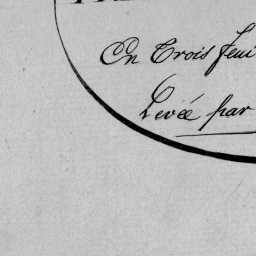 En Trois feui
Levée par